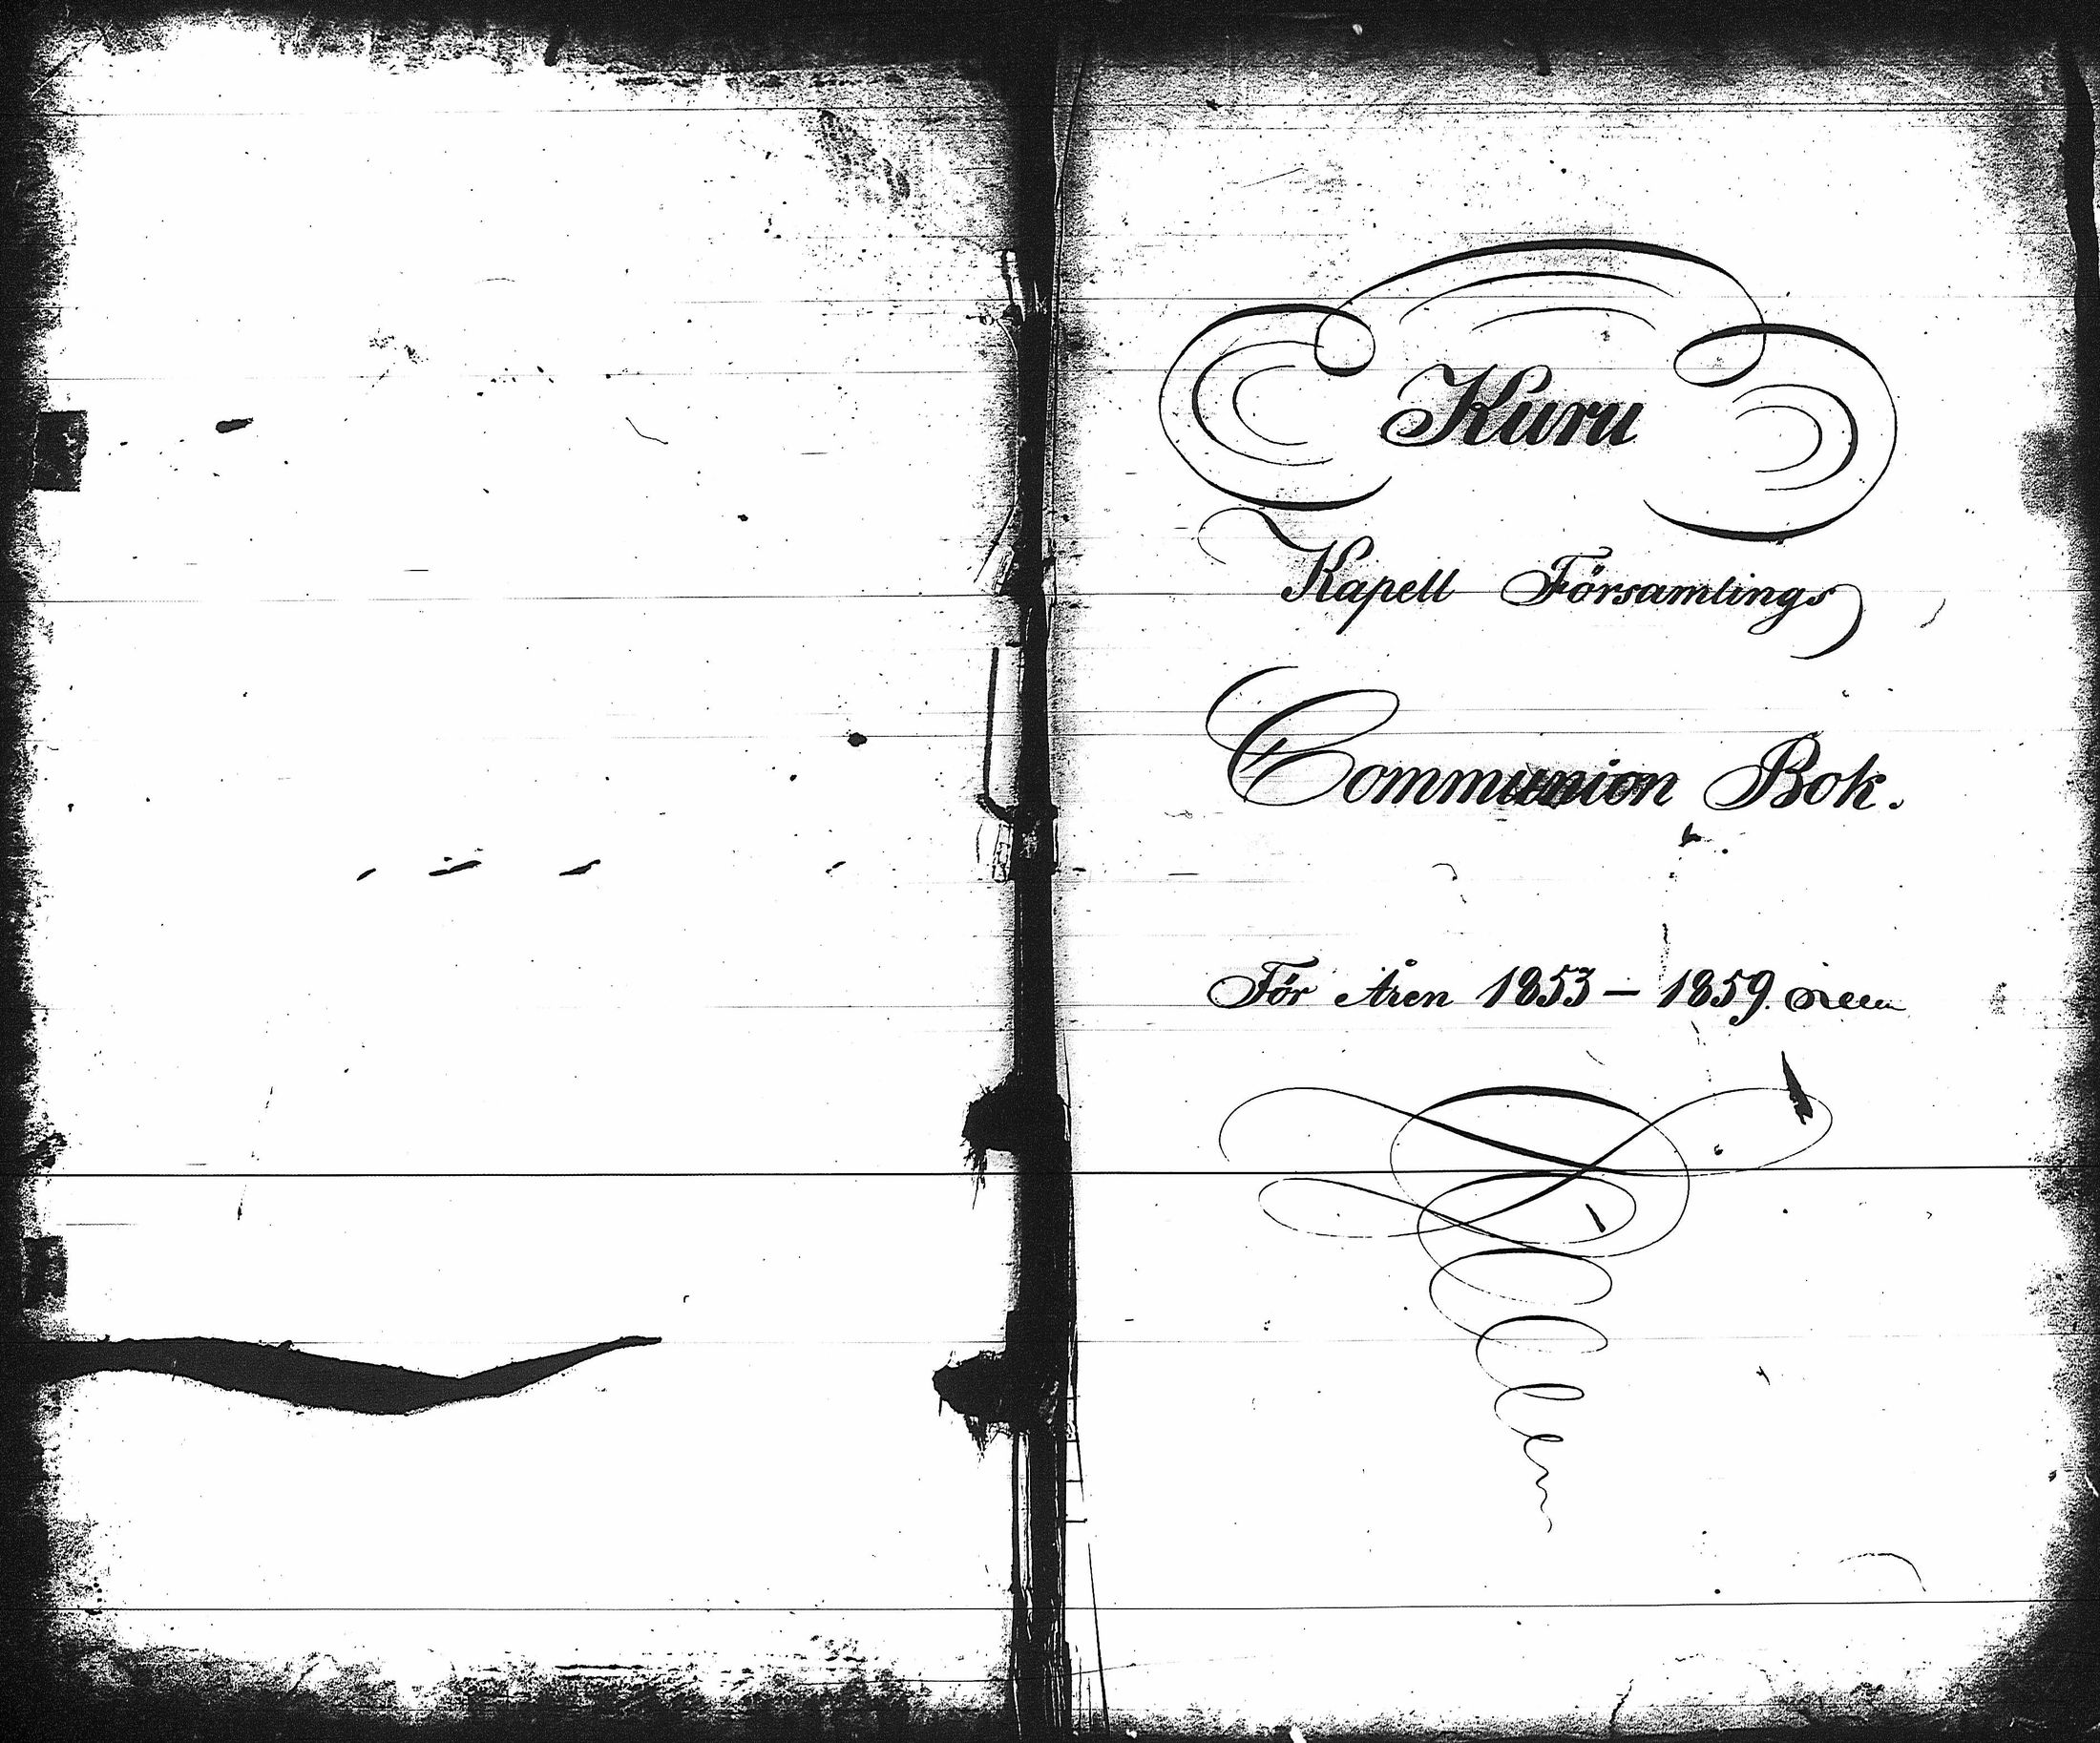 Kuru
Kapell Församlings
Communion Bok.
För Åren 1853 – 1859.